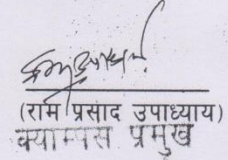 (राम प्रसाद उपाध्याय)
क्याम्पस प्रमुख